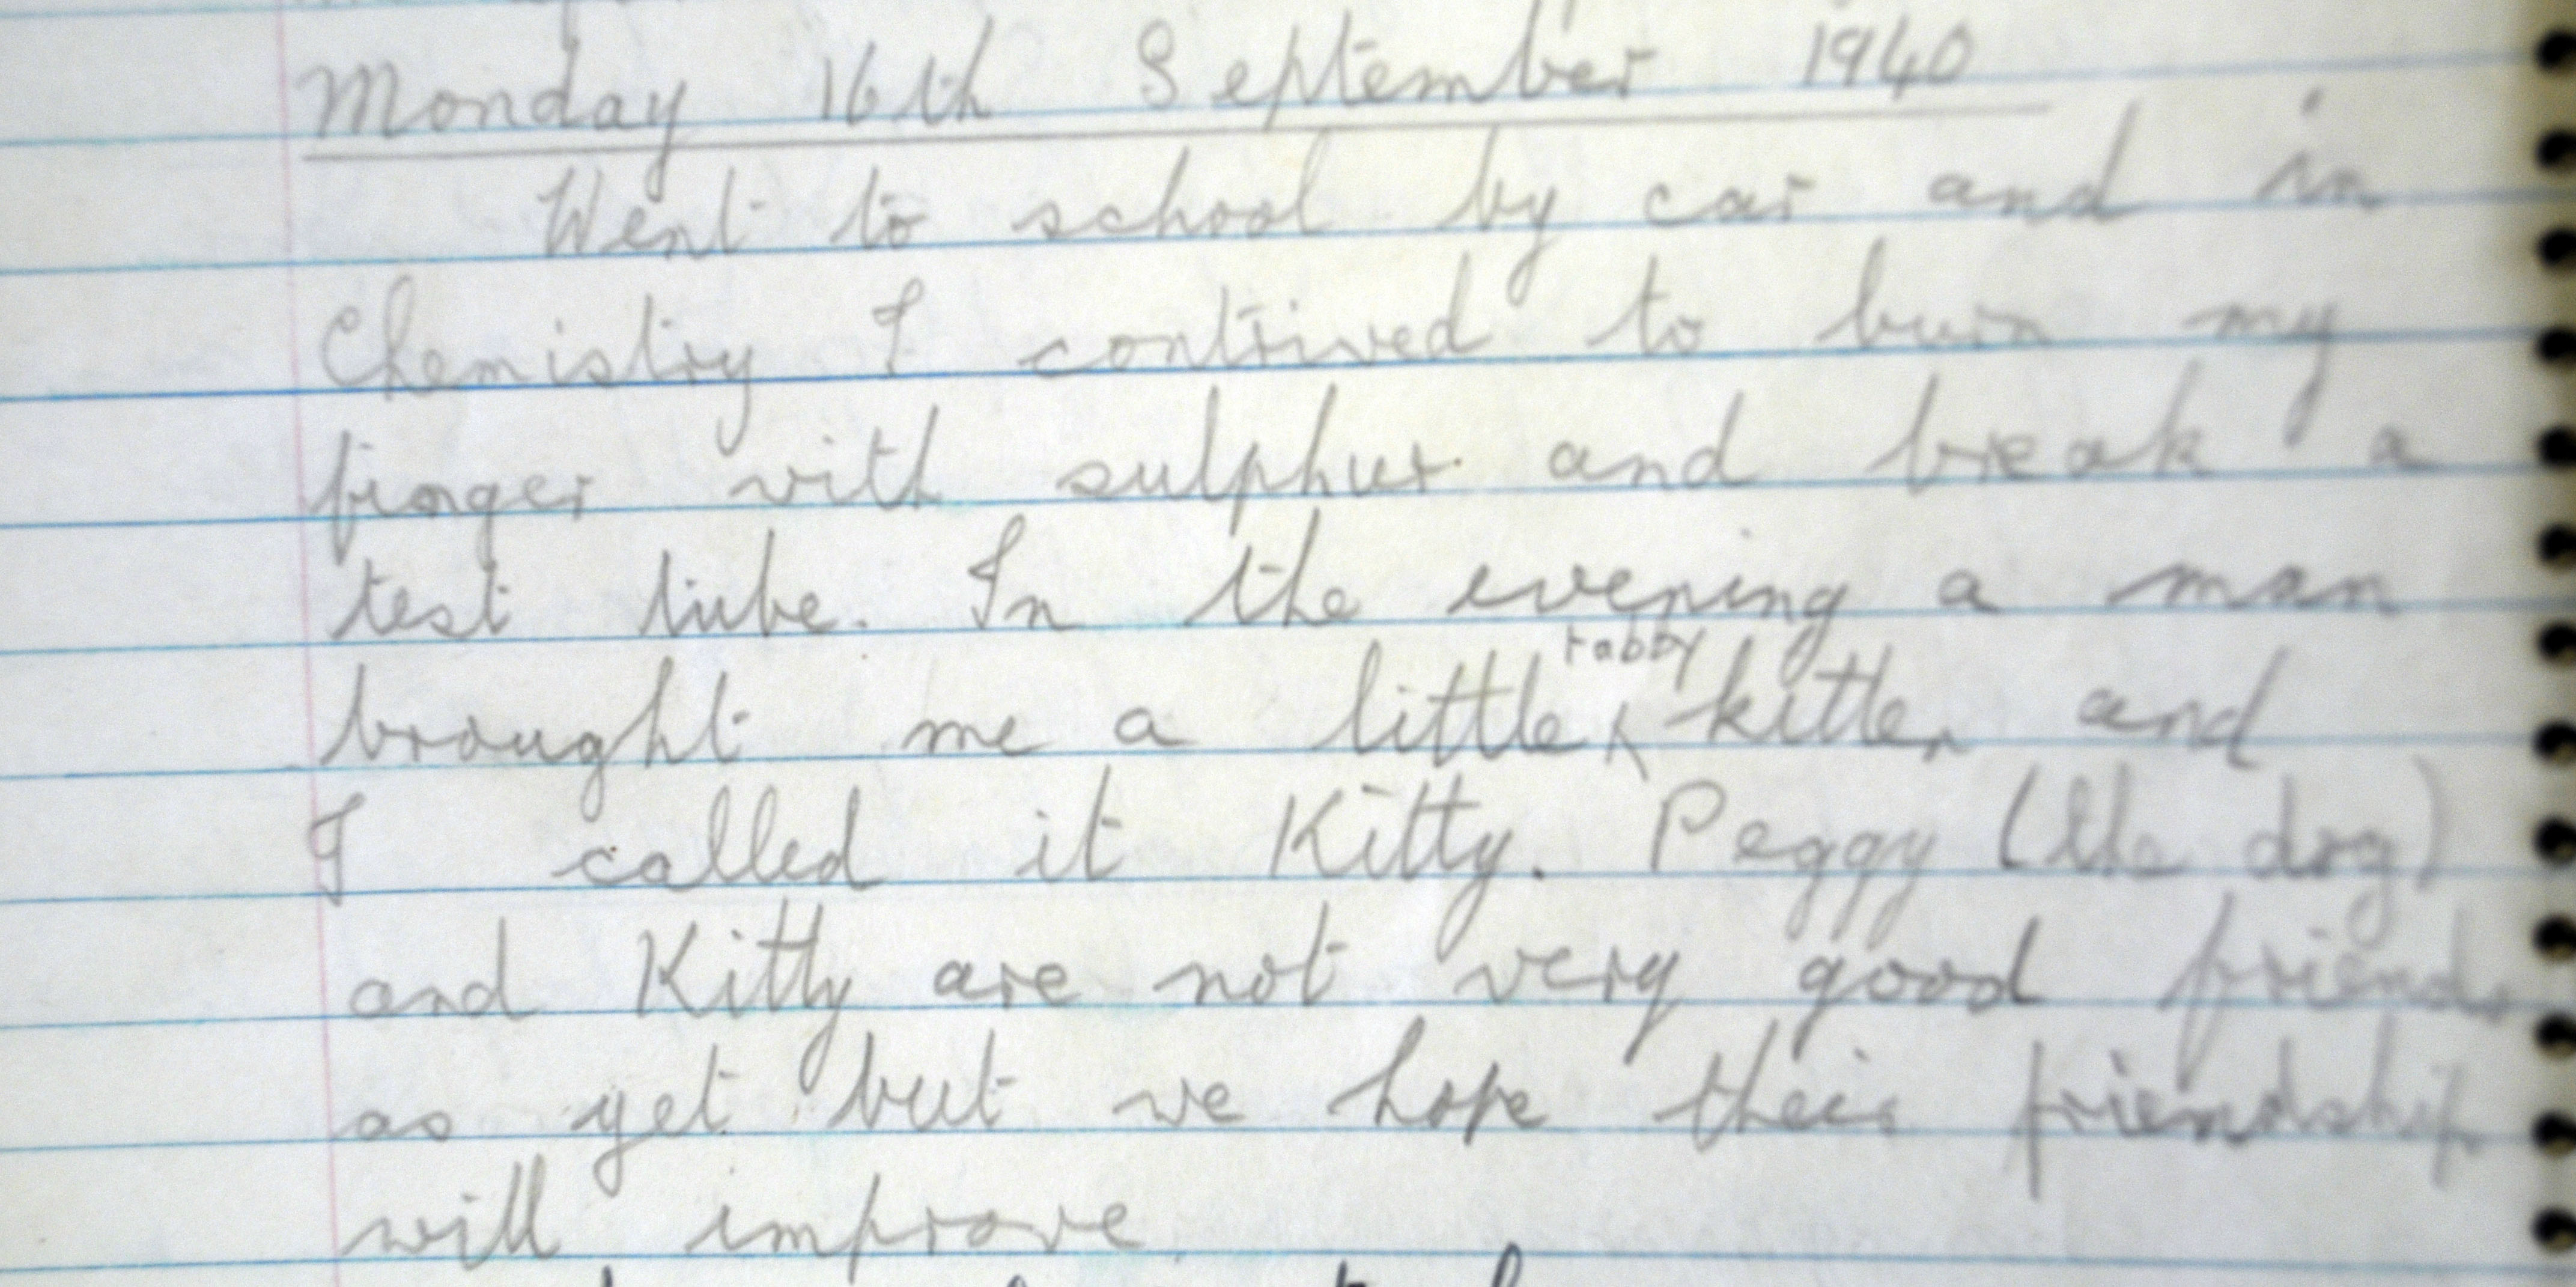 Monday 16th September 1940
Went to school by car and in
Chemistry I contrived to burn my
finger with sulphur and break a
test tube. In the evening a man
brought me a little tabby kitten and
I called it Kitty. Peggy (the dog)
and Kitty are not very good friends
as yet but we hope their friendship
will improve.